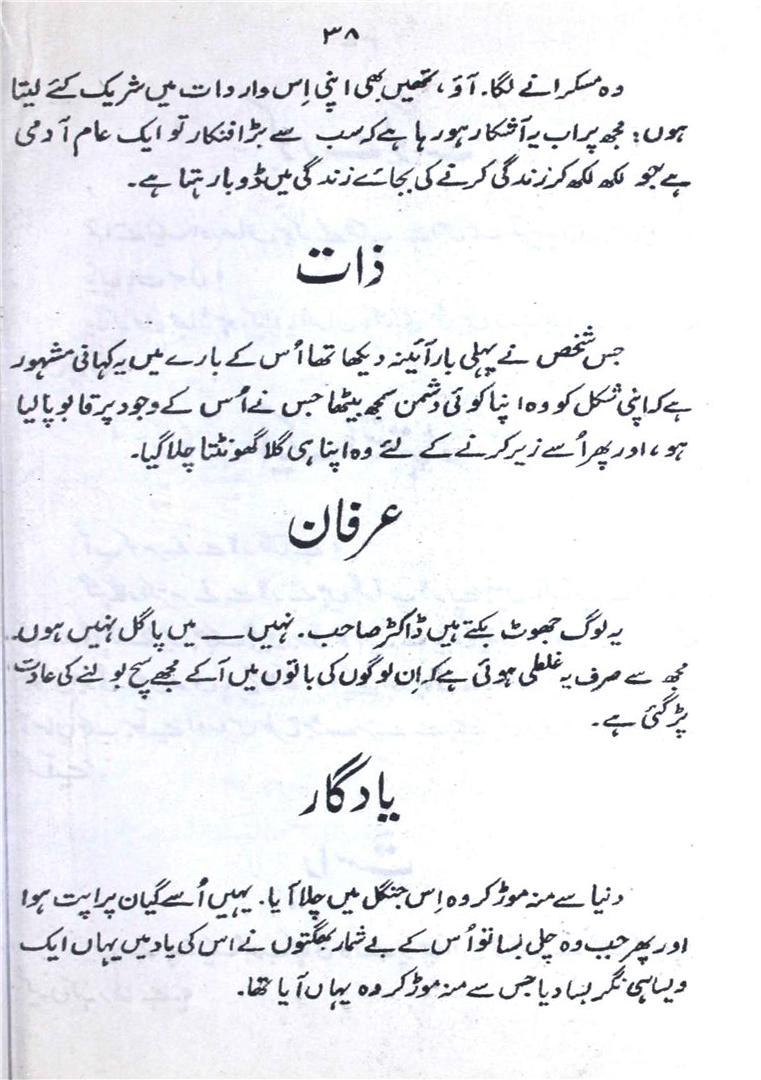 ۳۸
وہ مسکرانے لگا۔ آؤ، تمھیں بھی اپنی اِس واردات میں شریک کئے لیتا
ہوں: مجھ پر اب یہ آشکار ہو رہا ہے کہ سب سے بڑا فنکار تو ایک عام آدمی
ہے جو لکھ لکھ کر زندگی کرنے کی بجائے زندگی میں ڈوبا رہتا ہے۔
ذات
جس شخص نے پہلی بار آئینہ دیکھا تھا اُس کے بارے میں یہ کہانی مشہور
ہے کہ اپنی شکل کو وہ اپنا کوئی دشمن سمجھ بیٹھا جس نے اُس کے وجود پر قابو پا لیا
ہو، اور پھر اُسے زیر کرنے کے لئے وہ اپنا ہی گلا گھونٹتا چلا گیا۔
عرفان
یہ لوگ جھوٹ بکتے ہیں ڈاکٹر صاحب۔ نہیں — میں پاگل نہیں ہوں۔
مجھ سے صرف یہ غلطی ہوئی ہے کہ اِن لوگوں کی باتوں میں آکے مجھے سچ بولنے کی عادت
پڑ گئی ہے۔
یادگار
دنیا سے منہ موڑ کر وہ اِس جنگل میں چلا آیا۔ یہیں اُسے گیان پراپت ہوا
اور پھر جب وہ چل بسا تو اُس کے بے شمار بھگتوں نے اس کی یاد میں یہاں ایک
ویسا ہی نگر بسا دیا جس سے منہ موڑ کر وہ یہاں آیا تھا۔